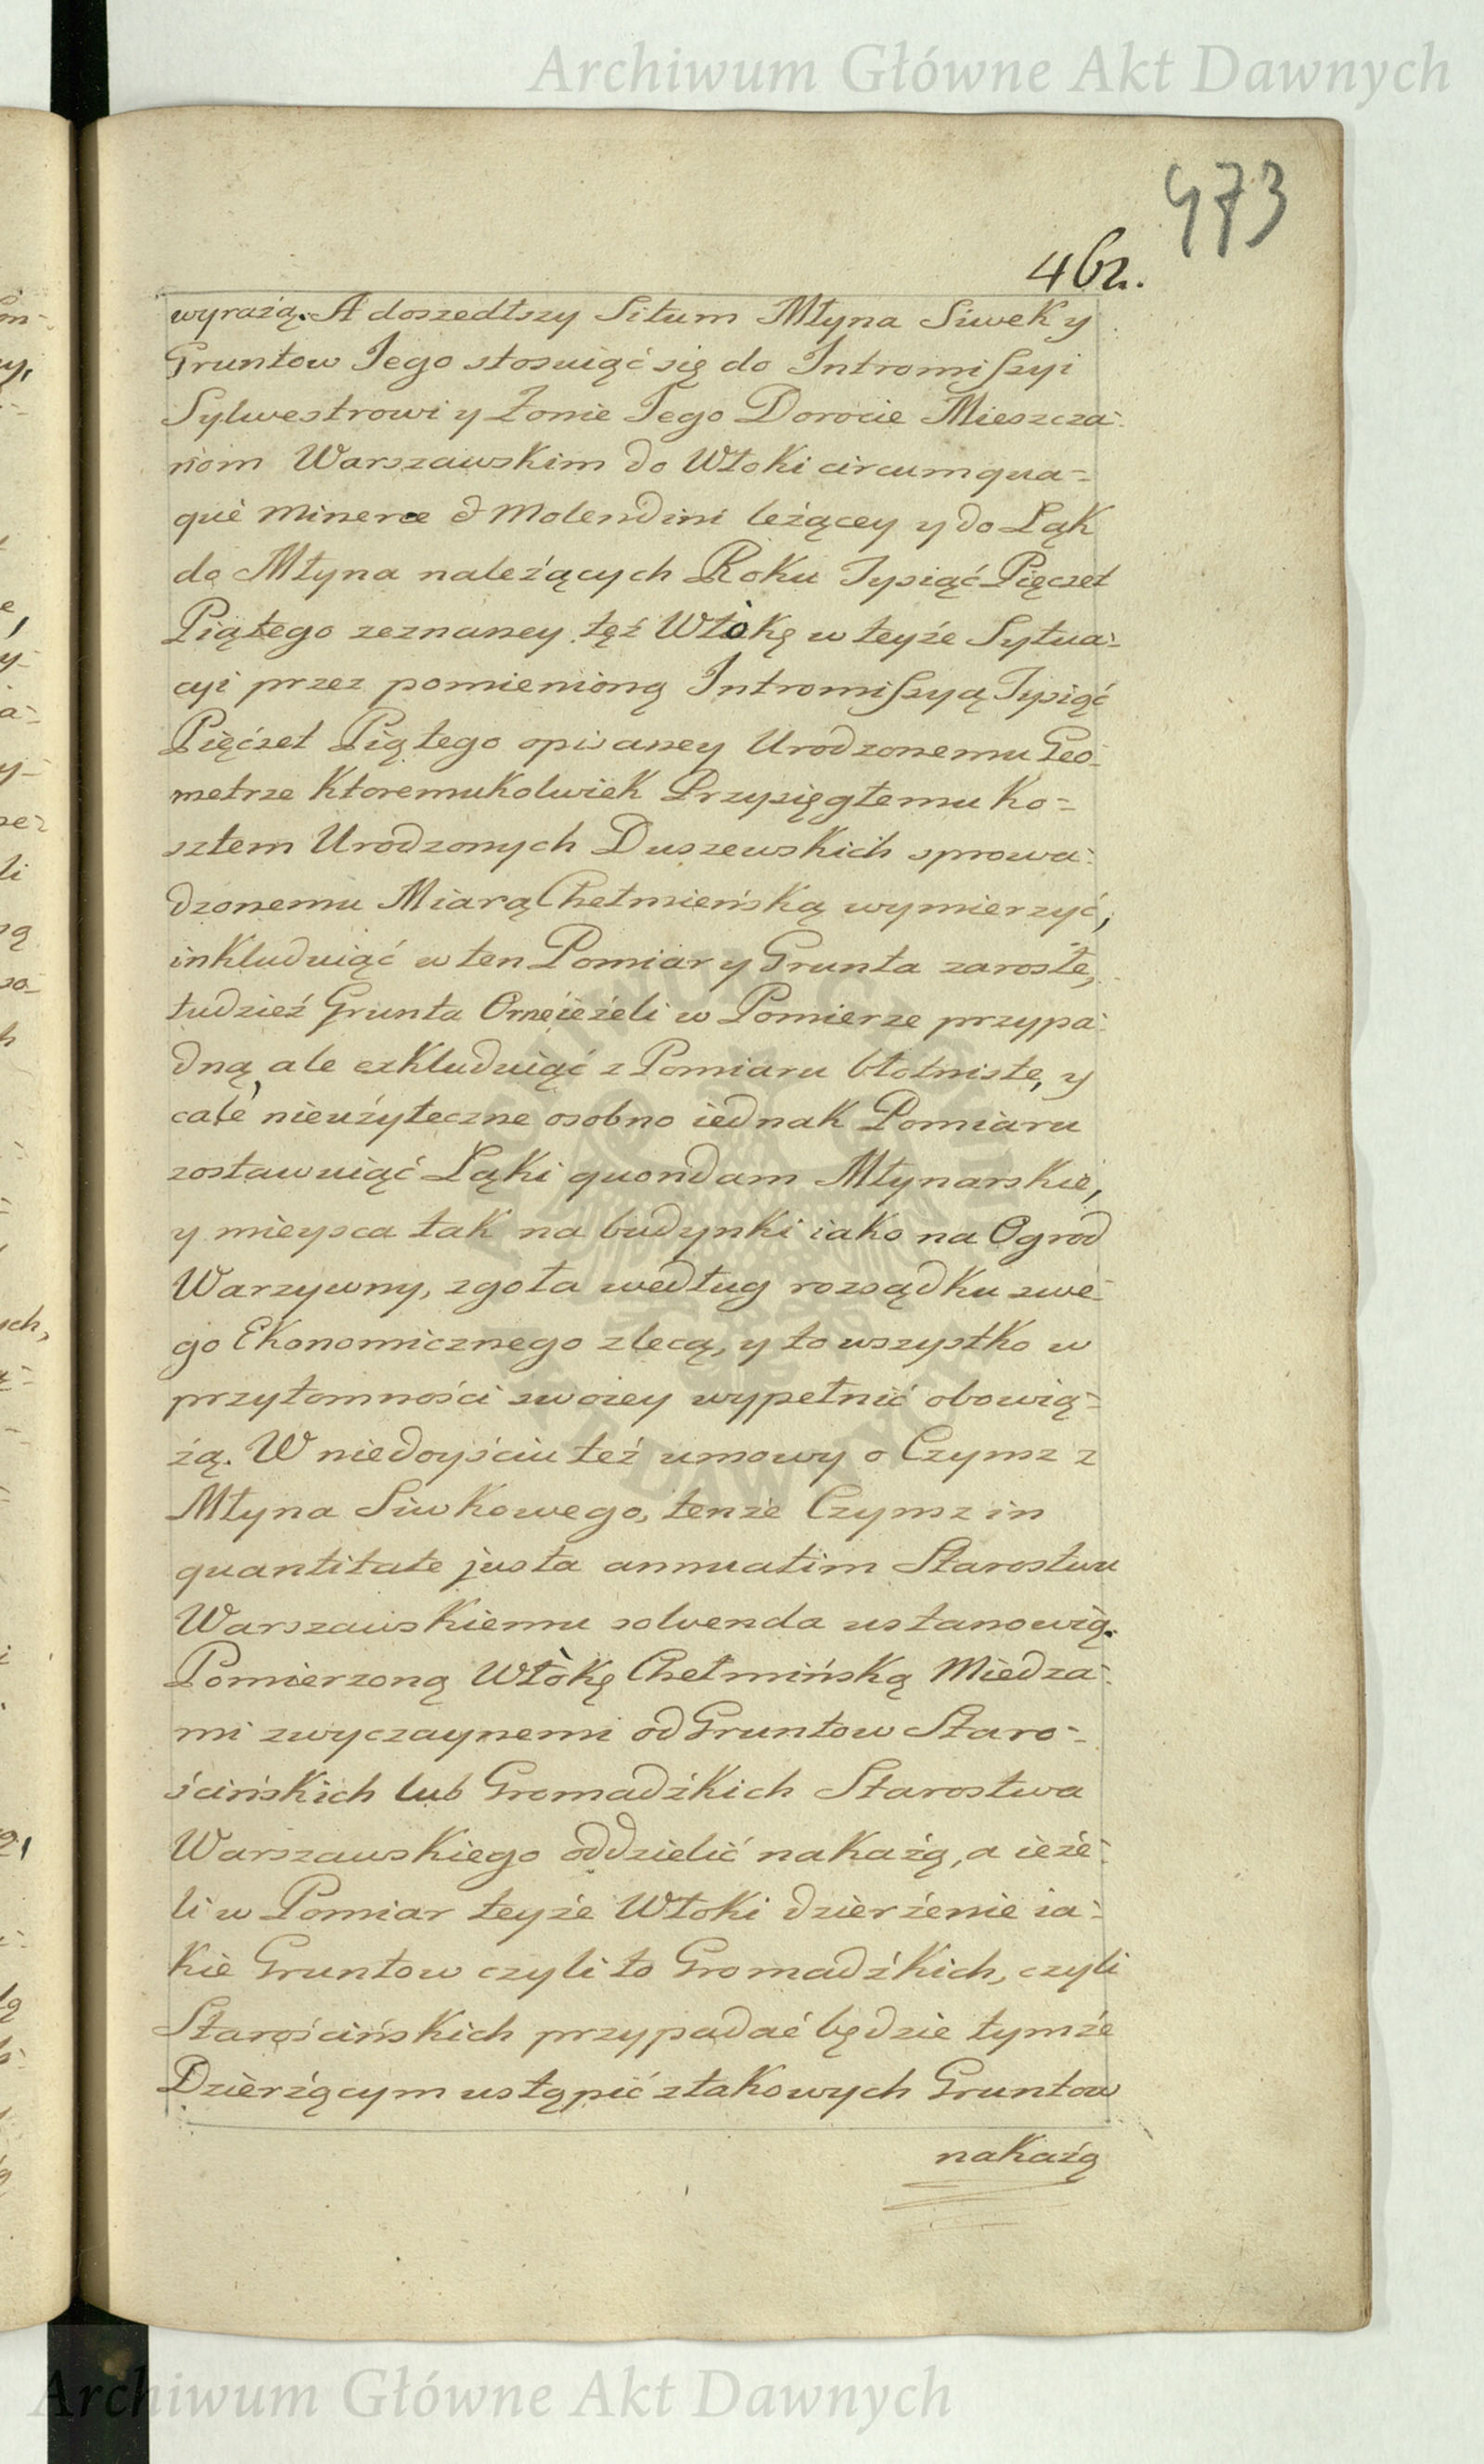 Archiwum Główne Akt Dawnych
473
462.
wyrażą. A doszedłszy Situm Młyna Siwek y
Gruntow Jego stosuiąć się do Intromiſsyi
Sylwestrowi y Żonie Jego Dorocie Mieszcza-
niom Warszawskim do Włoki circumqua=
que Minerae & Molendini leżącey y do Ląk
do Młyna należących Roku Tysiąć Pięczet
Piątego zeznaney tęż Włokę w teyże Sytua-
cyi przez pomienioną Intromiſsyą Tysiąć
Pięćzet Piątego opisaney Urodzonemu Geo-
metrze Ktoremukolwiek Przysięgłemu Ko=
sztem Urodzonych Duszewskich sprowa-
dzonemu Miarą Chełmieńską wymierzyć,
inkluduiąć w ten Pomiar y Grunta zarosłe,
tudzież Grunta Orne ieżeli w Pomierze przypa-
dną, ale exkluduiąć z Pomiaru błotniste, y
całe nieużyteczne osobno iednak Pomiaru
zostawuiąć Ląki quondam Młynarskie,
y mieysca tak na budynki iako na Ogrod
Warzywny, zgoła według rozsądku swe-
go Ekonomicznego zlecą, y to wszystko w
przytomności swoiey wypełnić obowią=
żą. W niedoyściu też umowy o Czymsz z
Młyna Siwkowego, tenże Czymsz in
quantitate justa annuatim Starostwu
Warszawskiemu solvenda ustanowią.
Pomierzoną Włókę Chełmińską Miedza-
mi zwyczaynemi od Gruntow Staro-
ścińskich lub Gromadźkich Starostwa
Warszawskiego oddzielić nakażą, a ieże-
li w Pomiar teyże Włoki dzierżenie ia-
kie Gruntow czyli to Gromadźkich, czyli
Starościńskich przypadać będzie tymże
Dzierżącym ustąpić z takowych Gruntow
nakażą
Archiwum Główne Akt Dawnych